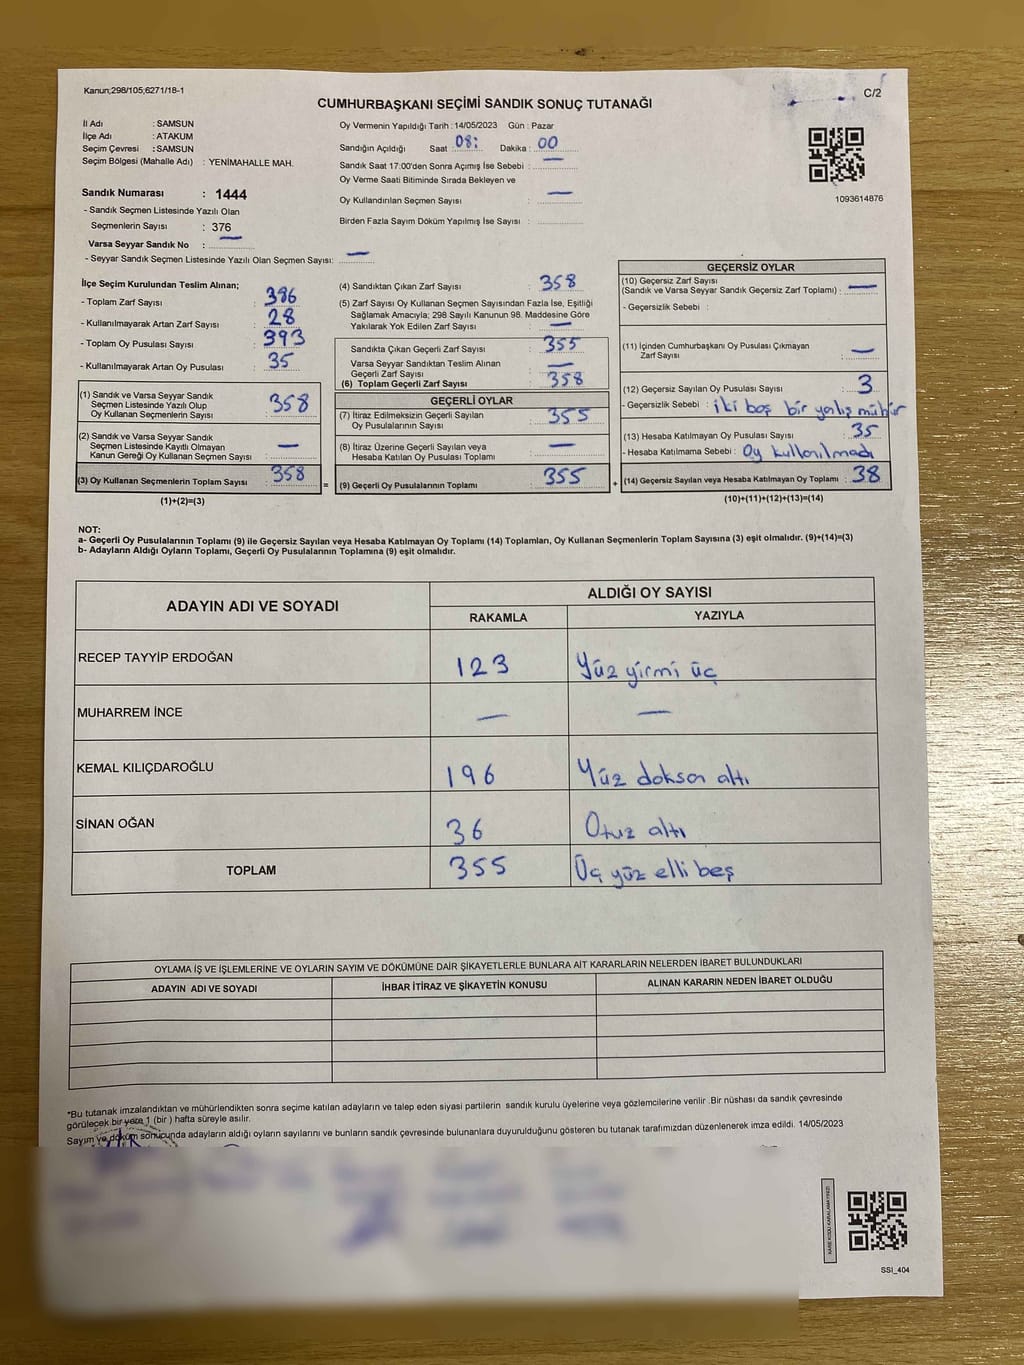 Kanun;298/105;6271/18-1
C/2
CUMHURBAŞKANI SEÇİMİ SANDIK SONUÇ TUTANAĞI
İl Adı : SAMSUN
İlçe Adı : ATAKUM
Seçim Çevresi : SAMSUN
Seçim Bölgesi (Mahalle Adı) : YENİMAHALLE MAH.
Sandık Numarası : 1444
- Sandık Seçmen Listesinde Yazılı Olan
Seçmenlerin Sayısı : 376
Varsa Seyyar Sandık No : —
- Seyyar Sandık Seçmen Listesinde Yazılı Olan Seçmen Sayısı: —
Oy Vermenin Yapıldığı Tarih : 14/05/2023 Gün : Pazar
Sandığın Açıldığı Saat 08: Dakika : 00
Sandık Saat 17:00'den Sonra Açımış İse Sebebi : —
Oy Verme Saati Bitiminde Sırada Bekleyen ve
Oy Kullandırılan Seçmen Sayısı : —
Birden Fazla Sayım Döküm Yapılmış İse Sayısı :
1093614876
İlçe Seçim Kurulundan Teslim Alınan;
- Toplam Zarf Sayısı : 386
- Kullanılmayarak Artan Zarf Sayısı : 28
- Toplam Oy Pusulası Sayısı : 393
- Kullanılmayarak Artan Oy Pusulası : 35
(1) Sandık ve Varsa Seyyar Sandık
Seçmen Listesinde Yazılı Olup
Oy Kullanan Seçmenlerin Sayısı : 358
(2) Sandık ve Varsa Seyyar Sandık
Seçmen Listesinde Kayıtlı Olmayan
Kanun Gereği Oy Kullanan Seçmen Sayısı : —
(3) Oy Kullanan Seçmenlerin Toplam Sayısı : 358
(1)+(2)=(3)
(4) Sandıktan Çıkan Zarf Sayısı : 358
(5) Zarf Sayısı Oy Kullanan Seçmen Sayısından Fazla İse, Eşitliği
Sağlamak Amacıyla; 298 Sayılı Kanunun 98. Maddesine Göre
Yakılarak Yok Edilen Zarf Sayısı : —
Sandıkta Çıkan Geçerli Zarf Sayısı : 355
Varsa Seyyar Sandıktan Teslim Alınan
Geçerli Zarf Sayısı : —
(6) Toplam Geçerli Zarf Sayısı : 358
GEÇERLİ OYLAR
(7) İtiraz Edilmeksizin Geçerli Sayılan
Oy Pusulalarının Sayısı : 355
(8) İtiraz Üzerine Geçerli Sayılan veya
Hesaba Katılan Oy Pusulası Toplamı : —
(9) Geçerli Oy Pusulalarının Toplamı : 355
GEÇERSİZ OYLAR
(10) Geçersiz Zarf Sayısı
(Sandık ve Varsa Seyyar Sandık Geçersiz Zarf Toplamı) : —
- Geçersizlik Sebebi :
(11) İçinden Cumhurbaşkanı Oy Pusulası Çıkmayan
Zarf Sayısı : —
(12) Geçersiz Sayılan Oy Pusulası Sayısı : 3
- Geçersizlik Sebebi : iki boş bir yanlış mühür
(13) Hesaba Katılmayan Oy Pusulası Sayısı : 35
- Hesaba Katılmama Sebebi : Oy kullanılmadı
(14) Geçersiz Sayılan veya Hesaba Katılmayan Oy Toplamı : 38
(10)+(11)+(12)+(13)=(14)
NOT:
a- Geçerli Oy Pusulalarının Toplamı (9) ile Geçersiz Sayılan veya Hesaba Katılmayan Oy Toplamı (14) Toplamları, Oy Kullanan Seçmenlerin Toplam Sayısına (3) eşit olmalıdır. (9)+(14)=(3)
b- Adayların Aldığı Oyların Toplamı, Geçerli Oy Pusulalarının Toplamına (9) eşit olmalıdır.
ADAYIN ADI VE SOYADI ALDIĞI OY SAYISI
RAKAMLA YAZIYLA
RECEP TAYYİP ERDOĞAN 123 Yüz yirmi üç
MUHARREM İNCE — —
KEMAL KILIÇDAROĞLU 196 Yüz doksan altı
SİNAN OĞAN 36 Otuz altı
TOPLAM 355 Üç yüz elli beş
OYLAMA İŞ VE İŞLEMLERİNE VE OYLARIN SAYIM VE DÖKÜMÜNE DAİR ŞİKAYETLERLE BUNLARA AİT KARARLARIN NELERDEN İBARET BULUNDUKLARI
ADAYIN ADI VE SOYADI İHBAR İTİRAZ VE ŞİKAYETİN KONUSU ALINAN KARARIN NEDEN İBARET OLDUĞU
*Bu tutanak imzalandıktan ve mühürlendikten sonra seçime katılan adayların ve talep eden siyasi partilerin sandık kurulu üyelerine veya gözlemcilerine verilir .Bir nüshası da sandık çevresinde
görülecek bir yere 1 (bir ) hafta süreyle asılır.
Sayım ve döküm sonucunda adayların aldığı oyların sayılarını ve bunların sandık çevresinde bulunanlara duyurulduğunu gösteren bu tutanak tarafımızdan düzenlenerek imza edildi. 14/05/2023
KARE KODU KARALAMAYINIZ!
SSI_404